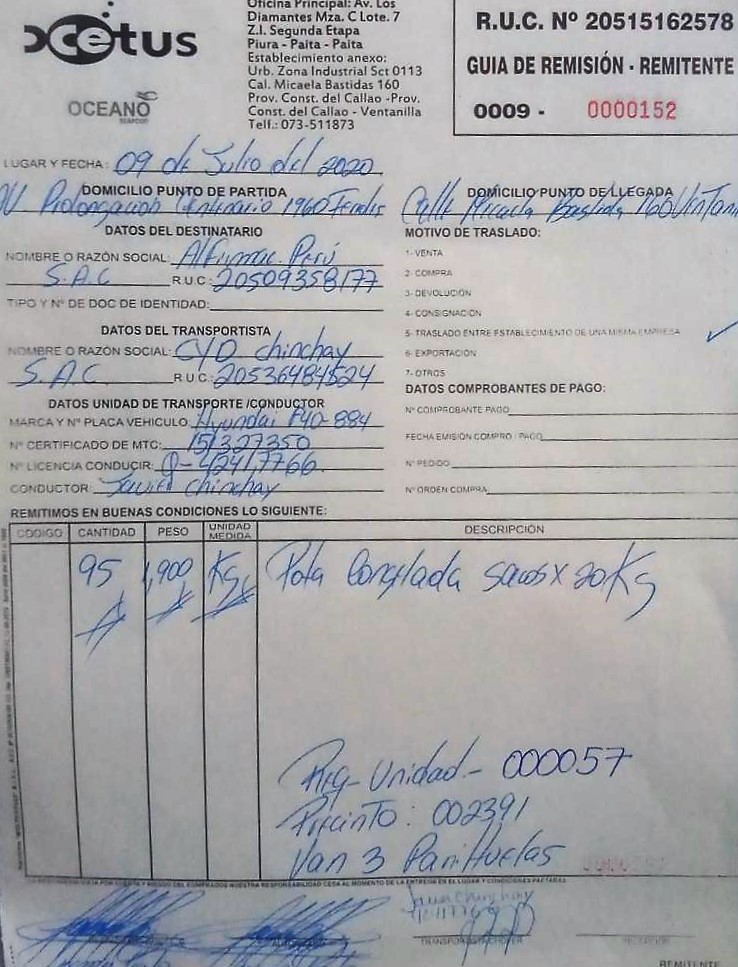 Oficina Principal: Av. Los
Diamantes Mza. C Lote. 7
Z.I. Segunda Etapa
Piura - Paita - Paita
Establecimiento anexo:
Urb. Zona Industrial Sct 0113
Cal. Micaela Bastidas 160
Prov. Const. del Callao -Prov.
Const. del Callao - Ventanilla
Telf.: 073-511873
cetus
OCEANO
SEAFOOD
R.U.C. Nº 20515162578
GUIA DE REMISIÓN - REMITENTE
0009 - 0000152
LUGAR Y FECHA: 09 de Julio del 2020
DOMICILIO PUNTO DE PARTIDA
Prolongacion Centenario 1960
DOMICILIO PUNTO DE LLEGADA
Calle Micaela Bastida 160
DATOS DEL DESTINATARIO
NOMBRE O RAZÓN SOCIAL: Alfimac Perú
S.A.C R.U.C.: 20509358177
TIPO Y Nº DE DOC DE IDENTIDAD:
MOTIVO DE TRASLADO:
1- VENTA
2- COMPRA
3- DEVOLUCIÓN
4- CONSIGNACIÓN
5- TRASLADO ENTRE ESTABLECIMIENTO DE UNA MISMA EMPRESA ✓
6- EXPORTACIÓN
7- OTROS
DATOS DEL TRANSPORTISTA
NOMBRE O RAZÓN SOCIAL: CYD chinchay
S.A.C. R.U.C.: 20536484524
DATOS UNIDAD DE TRANSPORTE /CONDUCTOR
MARCA Y Nº PLACA VEHICULO: Hyundai 884
Nº CERTIFICADO DE MTC: 151327350
Nº LICENCIA CONDUCIR: Q-42417766
CONDUCTOR: Javier Chinchay
DATOS COMPROBANTES DE PAGO:
Nº COMPROBANTE PAGO
FECHA EMISIÓN COMPRO / PAGO
Nº PEDIDO
Nº ORDEN COMPRA
REMITIMOS EN BUENAS CONDICIONES LO SIGUIENTE:
CODIGO CANTIDAD PESO UNIDAD MEDIDA DESCRIPCIÓN
95 1,900 Kg Pota Congelada sacos x 20 Kg
Reg- Unidad.- 000057
Precinto: 002391
Van 3 Parihuelas
REMITENTE